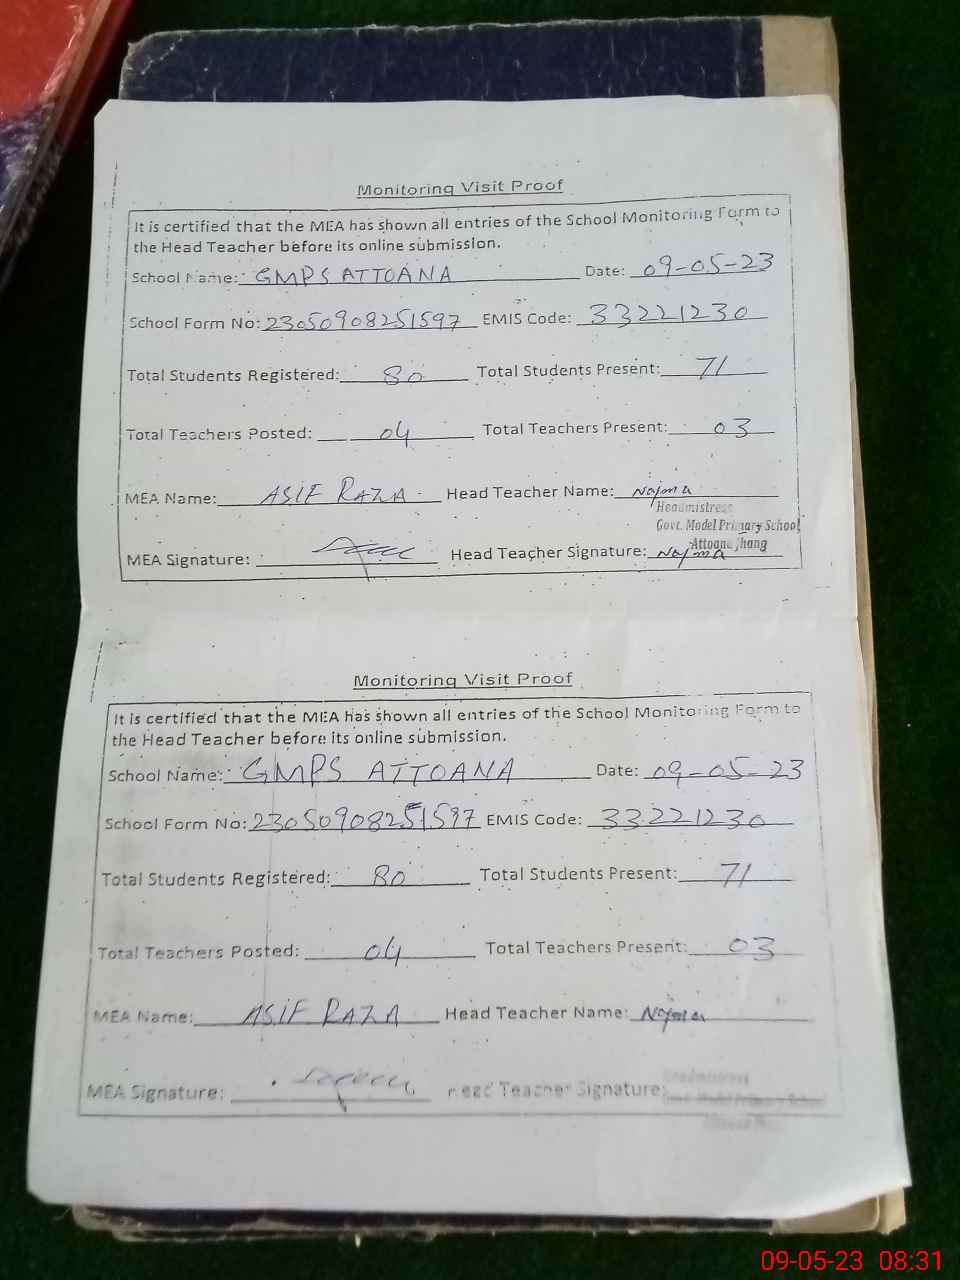 Monitoring Visit Proof
It is certified that the MEA has shown all entries of the School Monitoring Form to
the Head Teacher before its online submission.
School Name: GMPS ATTOANA Date: 09-05-23
School Form No: 23050908251597 EMIS Code: 33221230
Total Students Registered: 80 Total Students Present: 71
Total Teachers Posted: 04 Total Teachers Present: 03
MEA Name: ASIF RAZA Head Teacher Name: Najma
Headmistress
Govt. Model Primary School
Attoana Jhang
MEA Signature: Head Teacher Signature: Najma
Monitoring Visit Proof
It is certified that the MEA has shown all entries of the School Monitoring Form to
the Head Teacher before its online submission.
School Name: GMPS ATTOANA Date: 09-05-23
School Form No: 23050908251597 EMIS Code: 33221230
Total Students Registered: 80 Total Students Present: 71
Total Teachers Posted: 04 Total Teachers Present: 03
MEA Name: ASIF RAZA Head Teacher Name: Najma
MEA Signature: Head Teacher Signature:
Headmistress
Govt. Model Primary School
09-05-23 08:31